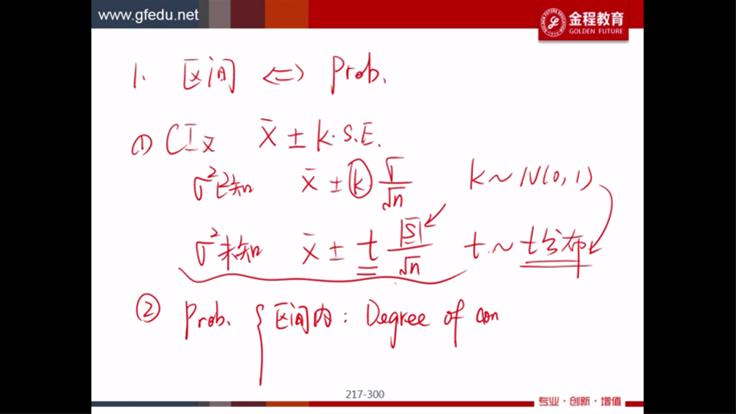 www.gfedu.net
金程教育
GOLDEN FUTURE
1. 区间 ⇔ Prob.
① CI x̄ ± k·S.E.
σ²已知 x̄ ± k σ/√n k ~ N(0,1)
σ²未知 x̄ ± t |S|/√n t ~ t分布
② Prob. { 区间内: Degree of con
217-300
专业·创新·增值